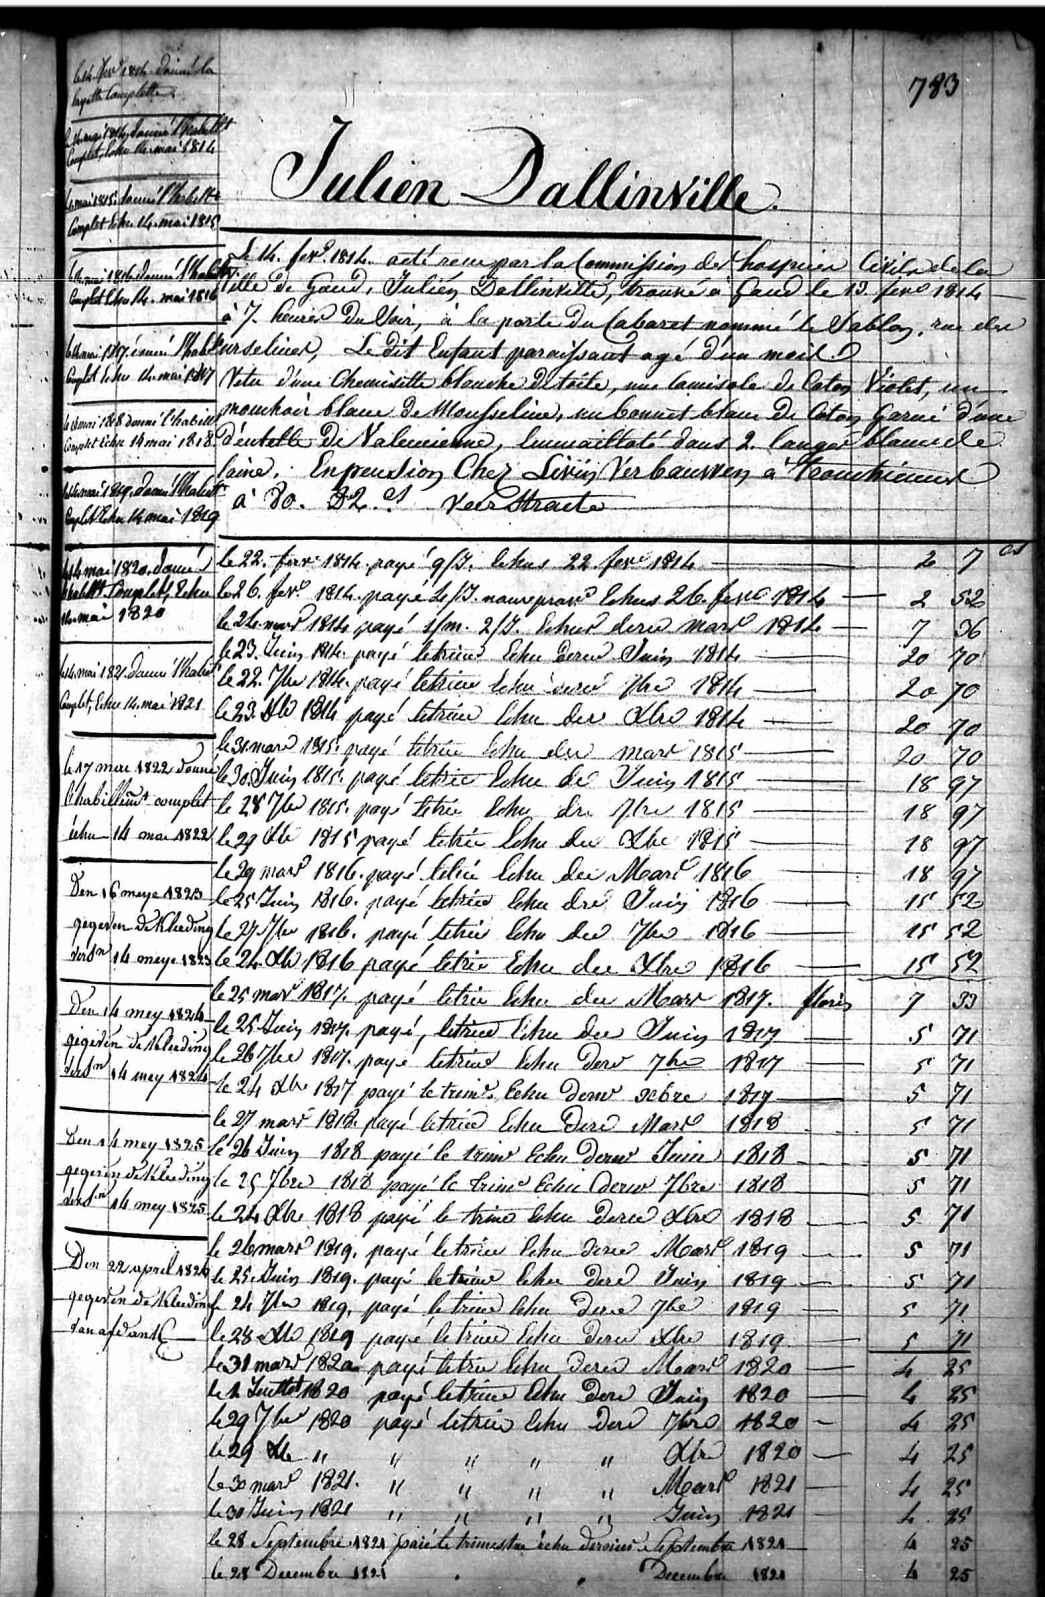 783
Julien Dallinville.
le 14. fevr 1814. donné la
layette Complette.
le 14 mai 1814, donné l'habillt
Complet, Echu 14. mai 1814
le mai 1815. donné l'habillt
Complet Echu 14. mai 1815
le mai 1816 donné l'habillt
Complet Echu 14. mai 1816
le 14 mai 1817. donné l'habil
Complet Echu 14. mai 1817
le 14 mai 1818 donné l'habill
Complet Echu 14 mai 1818
le 14 mai 1819. donné l'habillt
Complet Echu 14 mai 1819
le 14 mai 1820. donné
l'habillt. Complet, Echu
14. mai 1820
le 14. mai 1821. donné l'habil
Complet, Echu 14. mai 1821
le 17 mai 1822 donné
l'habillemt complet
échu 14 mai 1822
Den 16 meye 1823
gegeven de Kleeding
versn 14 meye 1823
Den 14 mey 1824
gegeven de Kleeding
versn 14 mey 1824
Den 14 mey 1825
gegeven de Kleeding
versn 14 mey 1825
Den 22 april 1826
gegeven de Kleeding
Le 14. fevr. 1814. a été recu par la Commission des hospices Civils de la
Ville de Gand, Julien Dallinville, trouvé a Gand le 13. fevr 1814
à 7. heures du Soir, à la porte du Cabaret nommé le Sablon, rue des
urselines, Le dit Enfant paraissant agé d'un mois.
Vetu d'une Chemisette blanche de toile, une Camisole de Coton Violet, un
mouchoir blanc de Mousseline, un bonnet blanc de Coton Garni d'une
dentelle de Valencienne, Emmailloté dans 2. langes blancs de
laine. En pension Chez Livin Verbauwen à Tronchiennes
à 80. 32.cs veerstraete
cs
le 22. fevr 1814. payé 9/J. Echus 22. fevr 1814 2 7
le 26. fevr 1814. payé 4/J. Echus 26. fevr 1814 2 52
le 24 mars 1814 payé 1/m. 2/J. Echus derer mars 1814 7 36
le 23. Juin 1814. payé letrime Echu derer Juin 1814 20 70
le 22. 7bre 1814. payé letrime Echu derer 7bre 1814 20 70
le 23. Xbre 1814 payé letrime Echu der Xbre 1814 20 70
le 31 mars 1815. payé letrim Echu der mars 1815 20 70
le 30. Juin 1815. payé letrim Echu de Juin 1815 18 97
le 28 7bre 1815. payé letrim Echu der 7bre 1815 18 97
le 29 Xbre 1815 payé letrim Echu der Xbre 1815 18 97
le 29 mars 1816. payé letrim Echu der Mars 1816 18 97
le 25 Juin 1816. payé letrim Echu der Juin 1816 15 52
le 27 7bre 1816. payé letrim Echu der 7bre 1816 15 52
le 24 Xbre 1816 payé letrim Echu der Xbre 1816 15 52
le 25 mars 1817. payé letrim Echu der Mars 1817. florins 7 33
le 25 Juin 1817. payé, letrime Echu der Juin 1817 5 71
le 26 7bre 1817. payé letrime Echu derer 7bre 1817 5 71
le 24 Xbre 1817 payé le trime. Echu dernr xbre 1817 5 71
le 27 mars 1818. payé letrime Echu derer Mars 1818 5 71
le 26 Juin 1818 payé le trime Echu dernr Juin 1818 5 71
le 25 7bre 1818 payé le trime Echu dernr 7bre 1818 5 71
le 24 Xbre 1818 payé le trime Echu derer Xbre 1818 5 71
le 26 mars 1819. payé letrime Echu derer Mars 1819 5 71
le 25 Juin 1819. payé letrime Echu derer Juin 1819 5 71
le 24 7bre 1819. payé letrime Echu derer 7bre 1819 5 71
le 28 Xbre 1819 payé letrime Echu derer Xbre 1819 5 71
le 31 mars 1820 payé letrim Echu derer Mars 1820 4 25
le 1 Juillet 1820 payé letrime Echu derer Juin 1820 4 25
le 29 7bre 1820 payé letrim Echu derer 7bre 1820 4 25
le 29 Xbre " " " " " Xbre 1820 4 25
le 30 mars 1821. " " " " Mars 1821 4 25
le 30 Juin 1821 " " " " Juin 1821 4 25
le 28 Septembre 1821 paié le trimestre échu dernier Septembre 1821 4 25
le 28 Decembre 1821 Decembre 1821 4 25